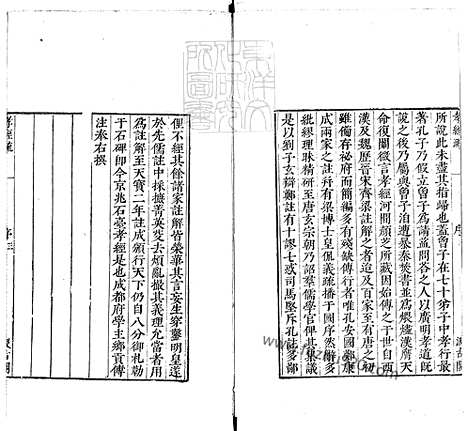 孝經疏
序
汲古閣
所說此未盡其指歸也蓋曾子在七十弟子中孝行最
著孔子乃假立曾子為請益問荅之人以廣明孝道既
說之後乃屬與曾子洎遭暴秦焚書並為煨燼漢膺天
命復闡微言孝經河間顏芝所藏因始傳之于世自西
漢及魏歷晉宋齊梁註解之者迨及百家至有唐之初
雖備存祕府而簡編多有殘缺傳行者唯孔安國鄭康
成兩家之註并有梁博士皇侃義疏播于國序然辭多
紕繆理昧精研至唐玄宗朝乃詔羣儒學官俾其集議
是以劉子玄辯鄭註有十謬七惑司馬堅斥孔註多鄙
俚不經其餘諸家註解皆榮華其言妄生穿鑿明皇遂
於先儒註中採摭菁英芟去煩亂撮其義理允當者用
為註解至天寶二年註成頒行天下仍自八分御札勒
于石碑即今京兆石臺孝經是也成都府學主鄉貢傳
注奉右撰
孝經疏
序三
汲古閣